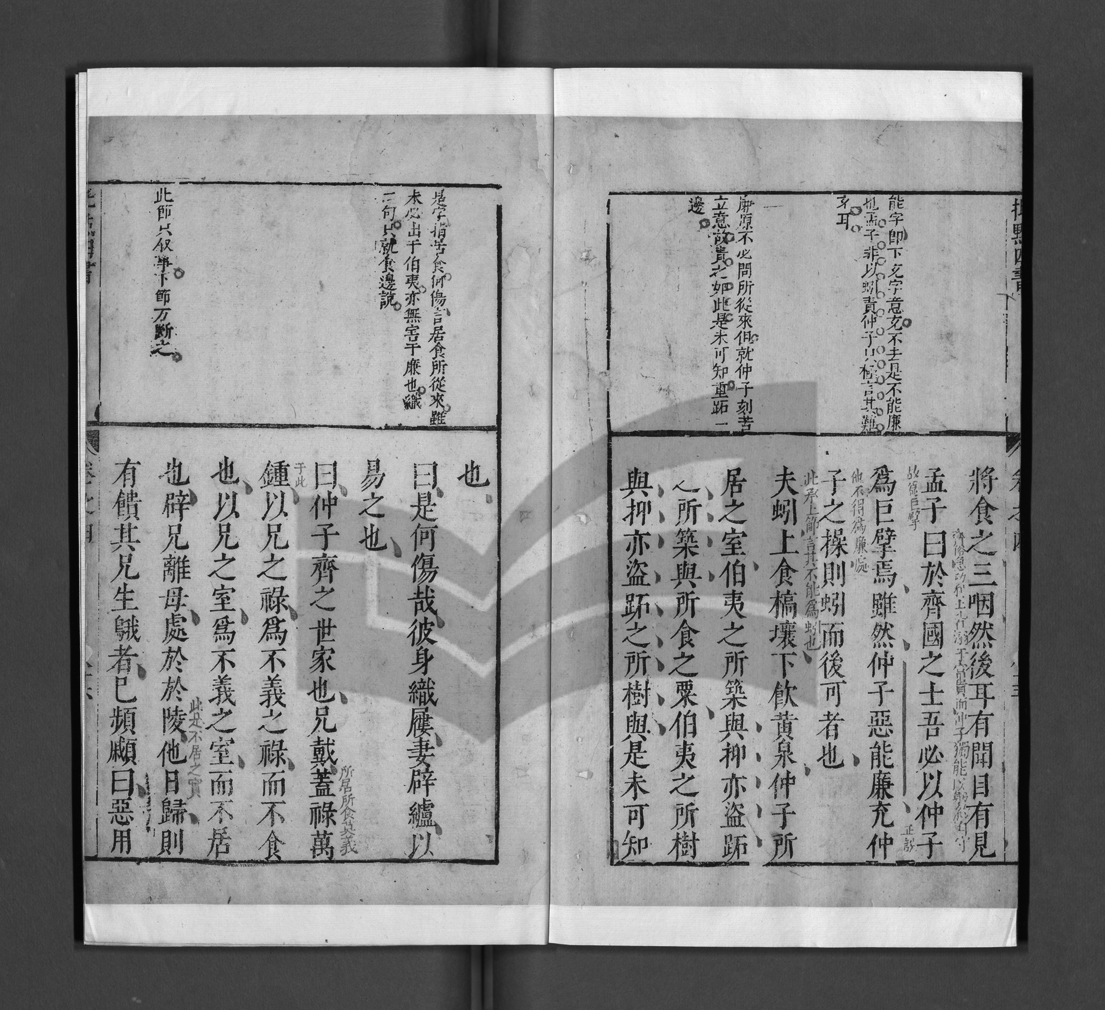 能字即下充字意充不去是不能廉
也孟子非以蚓責仲子只極言其難
充耳
廉原不必問所從來但就仲子刻苦
立意故責之如此是未可知重跖一
邊
將食之三咽然後耳有聞目有見
孟子曰於齊國之士吾必以仲子
爲巨擘焉雖然仲子惡能廉充仲
故爲巨擘
子之操則蚓而後可者也
他不得爲廉處
夫蚓上食槁壤下飲黃泉仲子所
此承上節言其不能爲蚓也
居之室伯夷之所築與抑亦盜跖
之所築與所食之粟伯夷之所樹
與抑亦盜跖之所樹與是未可知
是字指苦食何傷言居食所從來雖
未必出于伯夷亦無害于廉也織
二句只就食邊說
此節只叙事下節方斷之
也
曰是何傷哉彼身織屨妻辟纑以
易之也
曰仲子齊之世家也兄戴蓋祿萬
所居所食甚義
鍾以兄之祿爲不義之祿而不食
于此
也以兄之室爲不義之室而不居
也辟兄離母處於於陵他日歸則
此是不居之實
有饋其兄生鵝者已頻顣曰惡用
卷之四